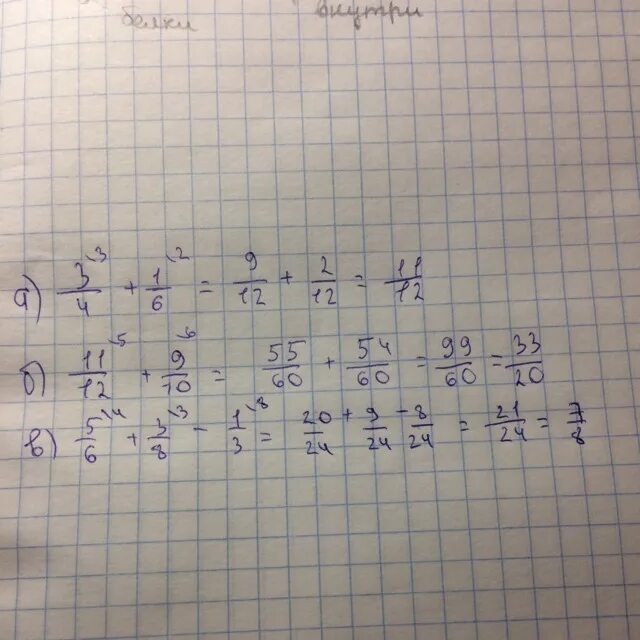 белки внутри
а) 3\3/4 + 1\2/6 = 9/12 + 2/12 = 11/12
б) 11\5/12 + 9\6/10 = 55/60 + 54/60 = 99/60 = 33/20
в) 5\4/6 + 3\3/8 - 1\8/3 = 20/24 + 9/24 - 8/24 = 21/24 = 7/8